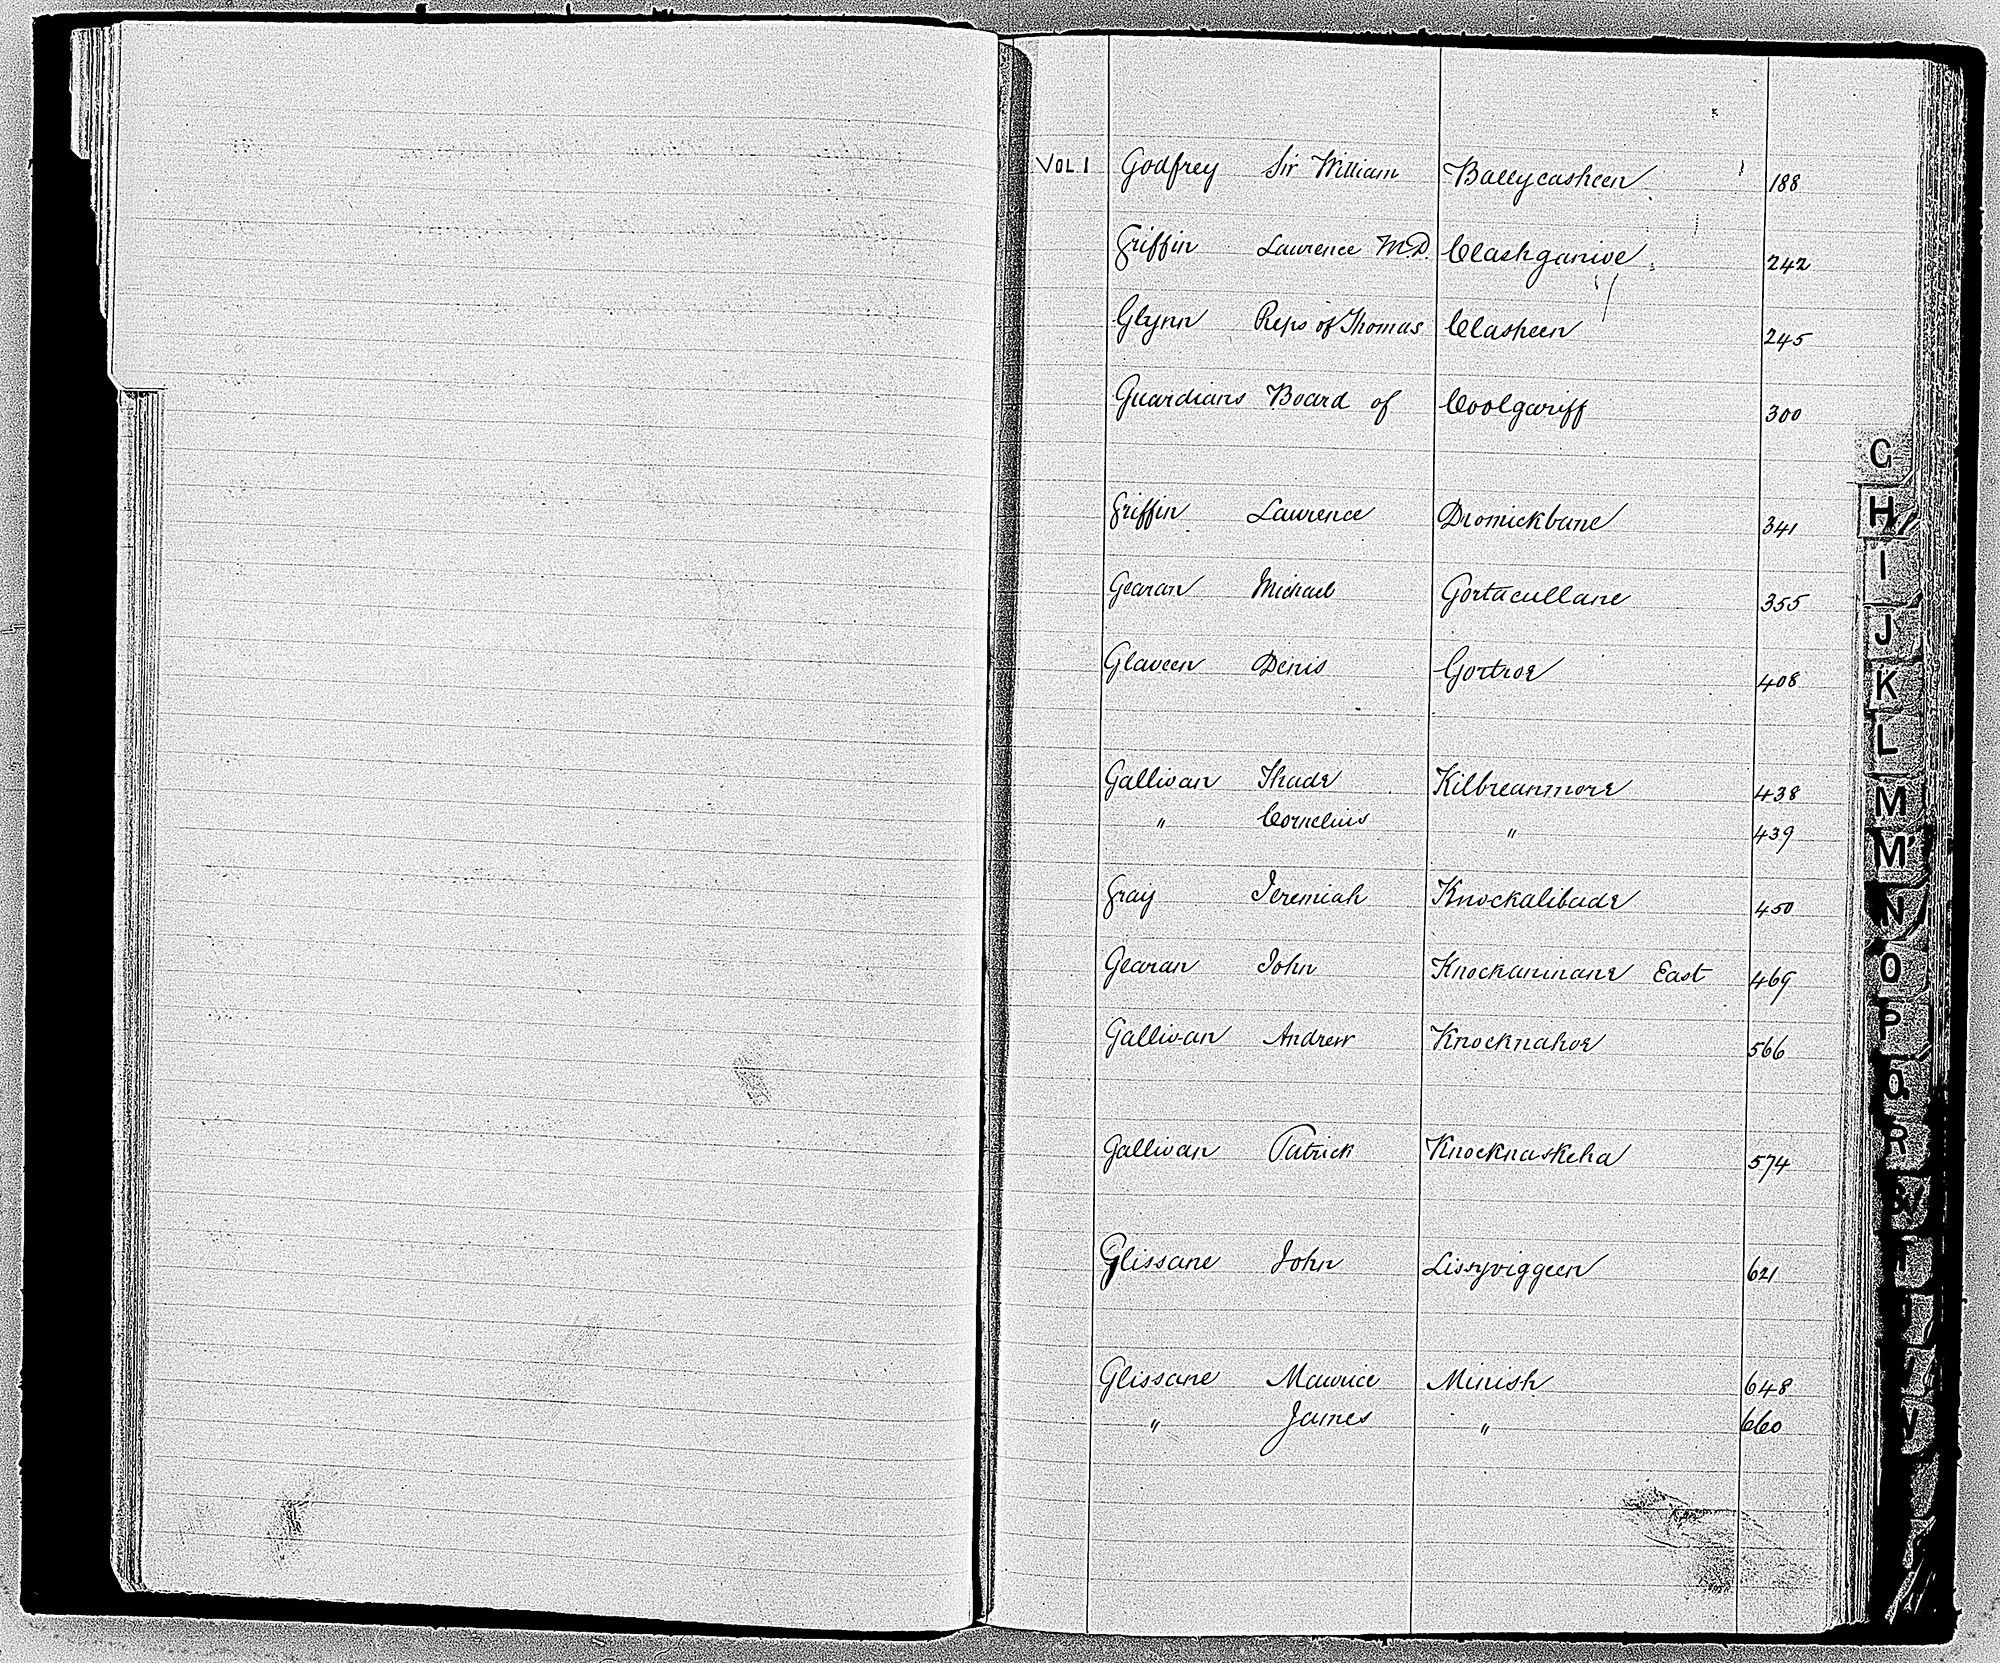 VOL 1 Godfrey Sir William Ballycasheen 188
Griffin Laurence M.D. Clashganive 242
Glynn Reps of Thomas Clasheen 245
Guardians Board of Coolgariff 300
Griffin Laurence Dromickbane 341
Gearan Michael Gortacullane 355
Glaveen Denis Gortroe 408
Gallivan Thade Kilbreanmore 438
" Cornelius " 439
Gray Jeremiah Knockalibade 450
Gearan John Knockaninane East 469
Gallivan Andrew Knocknahoe 566
Gallivan Patrick Knocknaskeha 574
Glissane John Lissyviggeen 621
Glissane Maurice Minish 648
" James " 660
G
H
I
J
K
L
M
M'
N
O
P
Q
R
T